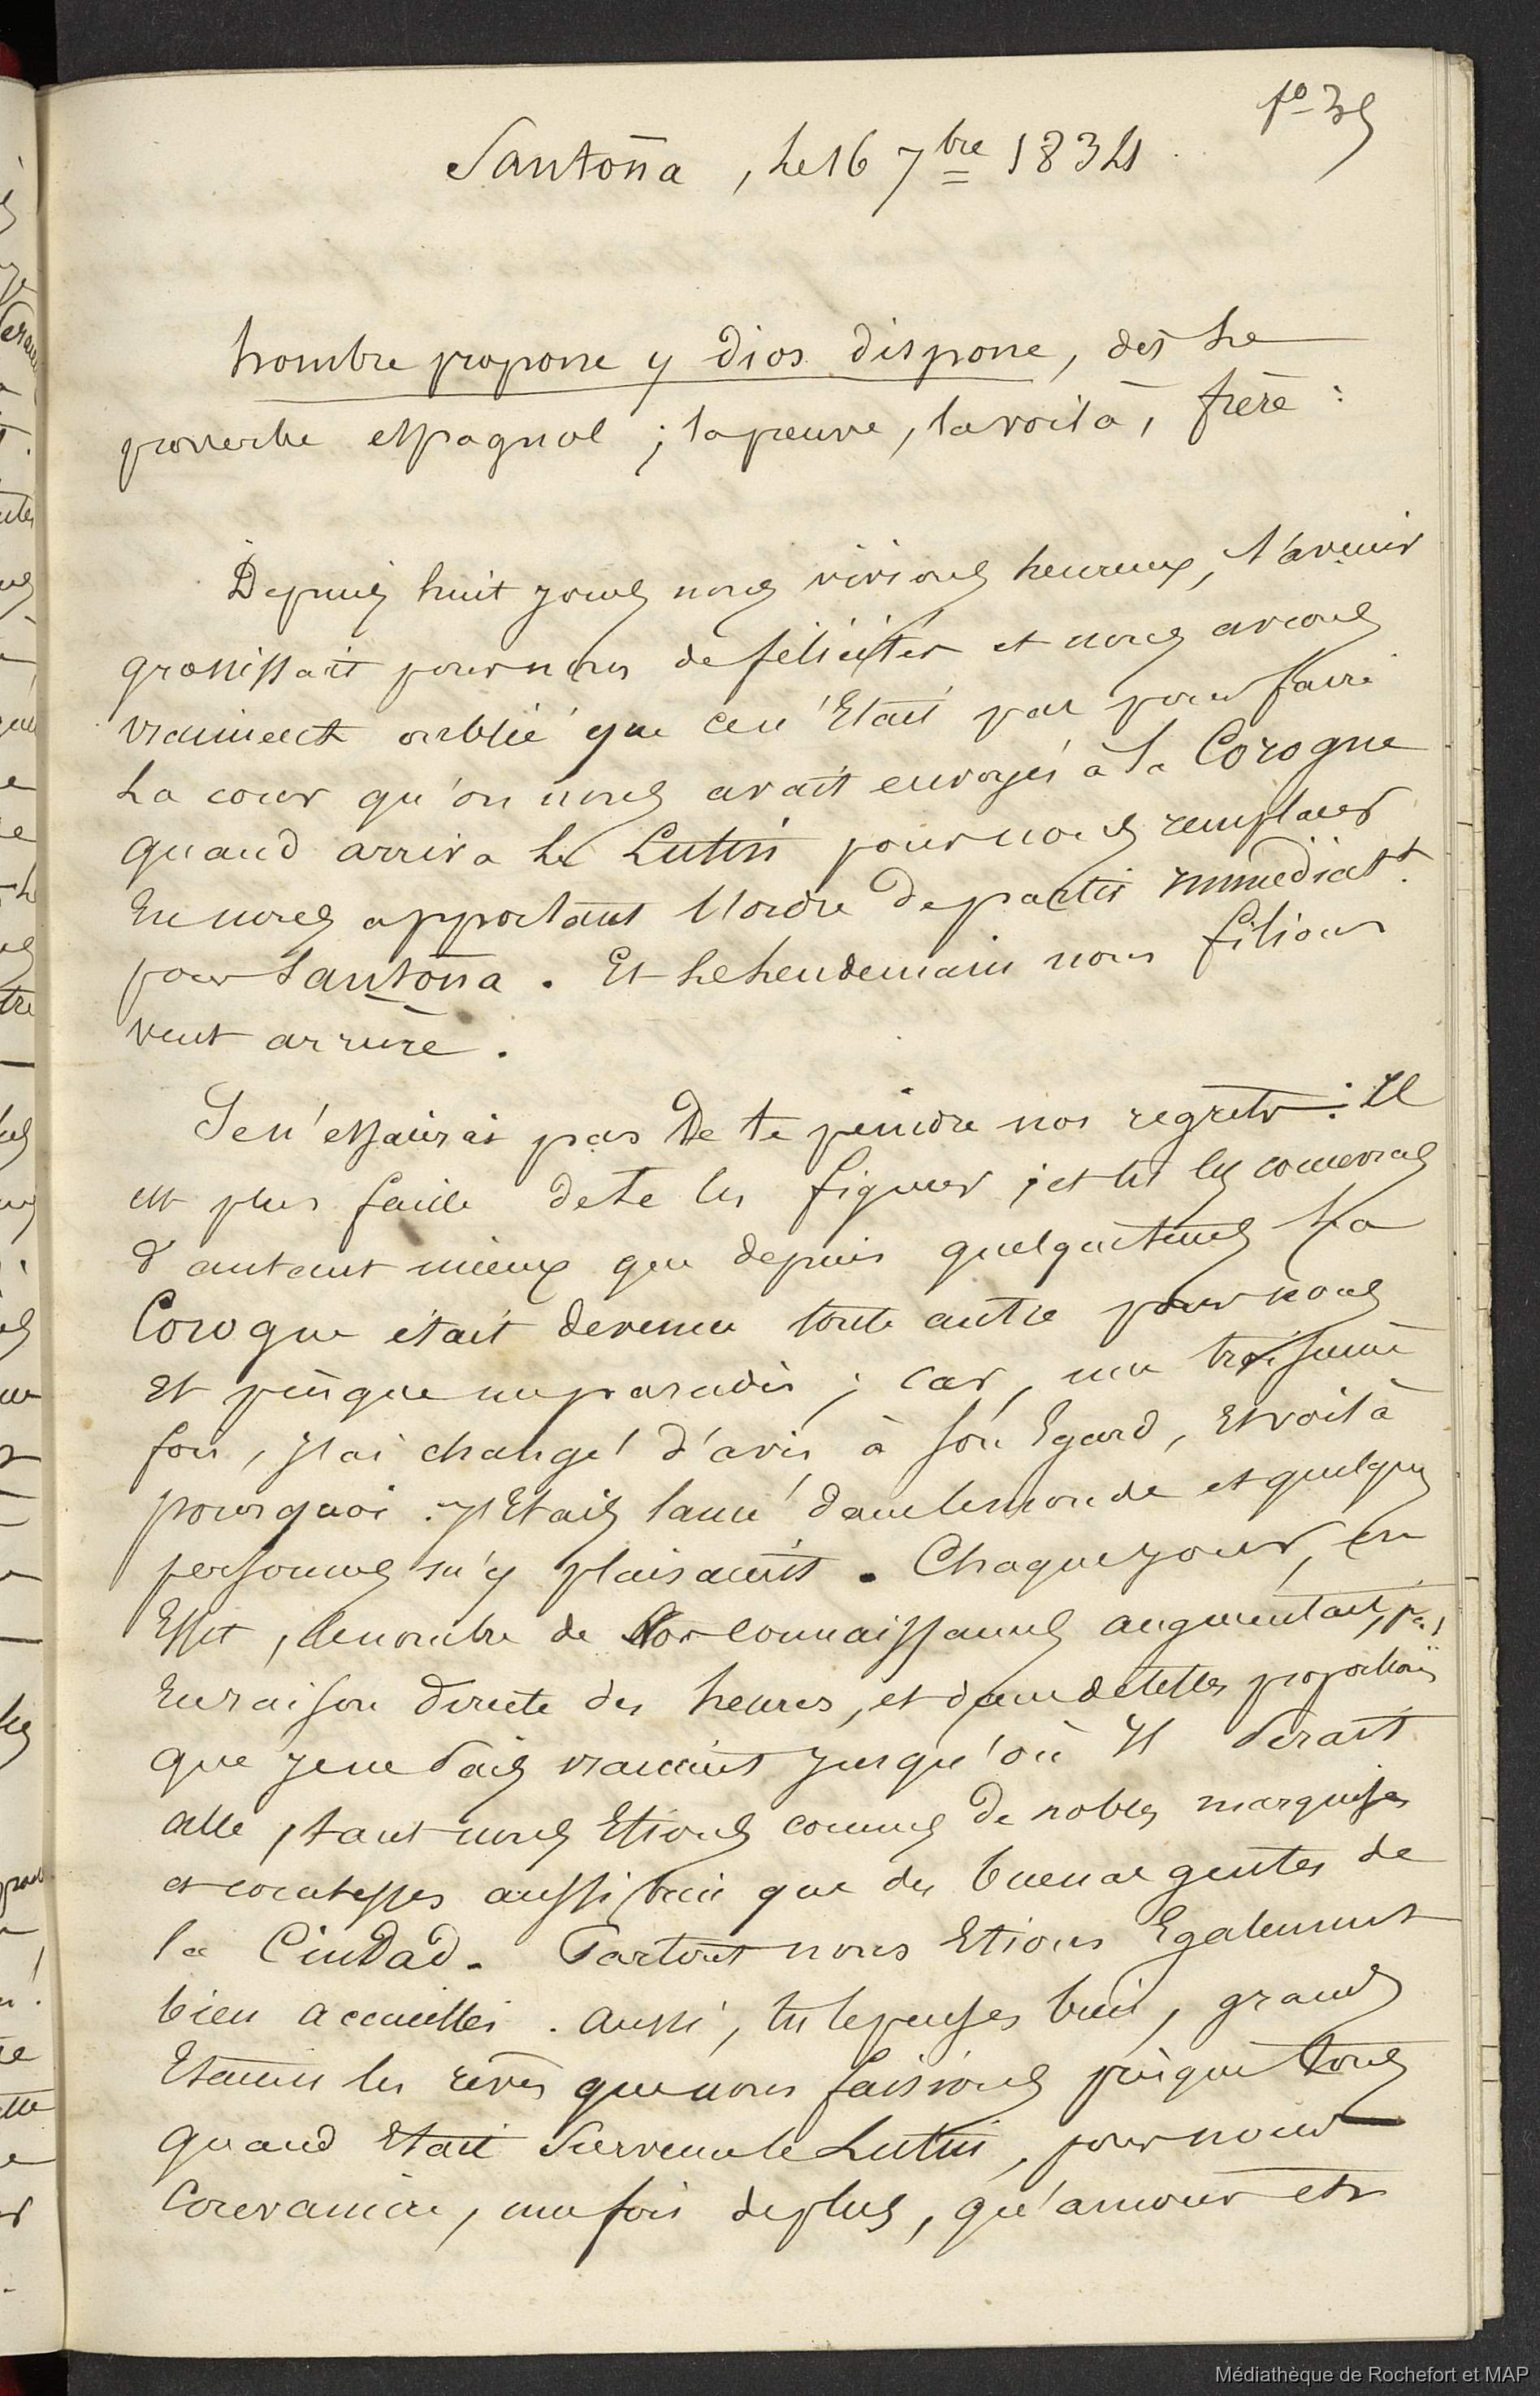 fo 35
Santoña, le 16 7bre 1834
hombre propone y dios dispone, dis le
proverbe espagnol ; la preuve, la voilà, frère :
Depuis huit jours nous vivions heureux, l'avenir
grossissait pour nous de félicités et nous avions
vraiment oublié que ce n'était pas pour faire
la cour qu'on nous avait envoyés à la Corogne
quand arriva le Lutin pour nous remplacer
en nous apportant l'ordre de partir immédiatt
pour Santoña. Et le lendemain nous filions
vent arrière.
Je n'essaierai pas de te peindre nos regrets : Il
est plus facile de te les figurer ; et tu les concevras
d'autant mieux que depuis quelque temps La
Corogne était devenue toute autre pour nous
et presque un paradis ; car, une troisième
fois, j'ai changé d'avis à son égard, et voilà
pourquoi : j'étais lancé dans le monde et quelques
personnes m'y plaisaient. Chaque jour, en
effet, le nombre de nos connaissances augmentait,
en raison directe des heures, et dans de telles proportions
que je ne sais vraiment jusqu'où il serait
allé, tant nous étions connus de nobles marquises
et comtesses aussi bien que des buenas gentes de
la Ciudad. Partout nous étions également
bien accueillis. Aussi, tu le penses bien, grands
étaient les rêves que nous faisions presque tous
quand était survenu le Lutin, pour nous
convaincre, une fois de plus, qu'amour et
Médiathèque de Rochefort et MAP